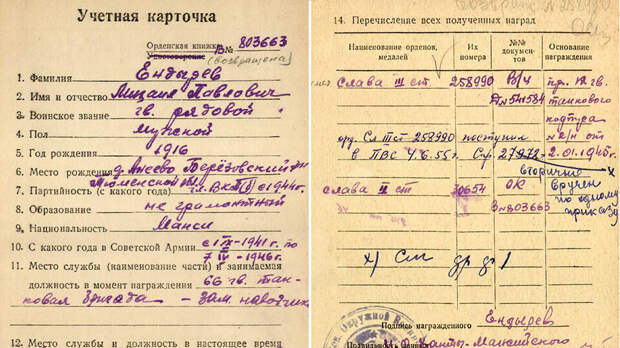 Учетная карточка
Орденская книжка В№ 803663
Удостоверение (возвращена)
1. Фамилия Ендырев
2. Имя и отчество Михаил Павлович
3. Воинское звание гв. рядовой
4. Пол мужской
5. Год рождения 1916
6. Место рождения д. Анеево Берёзовский
Тюменской
7. Партийность (с какого года) чл. ВКП(б) с 1944г.
8. Образование не грамотной
9. Национальность Манси
10. С какого года в Советской Армии с IX-1941г. по
7 1946г.
11. Место службы (наименование части) и занимаемая
должность в момент награждения 66 гв. тан-
ковая бригада – зам. наводчика
12. Место службы и должность в настоящее время
14. Перечисление всех полученных наград
Наименование орденов, медалей
Их номера
№№ документов
Основание награждения
Слава III ст. 258990 В/Ч пр. 12 гв.
541584 танкового
корпуса
орд. Сл. III ст 258990 поступил №2/н от
в ПВС 4.6.55г. Спр. 27972 2.01.1945г.
вторично
Слава II ст 30654 ОК вручен
В№803663 по одному
приказу
х) См др. д 1
Ендырев
Подпись награжденного
Ханты-Мансийского